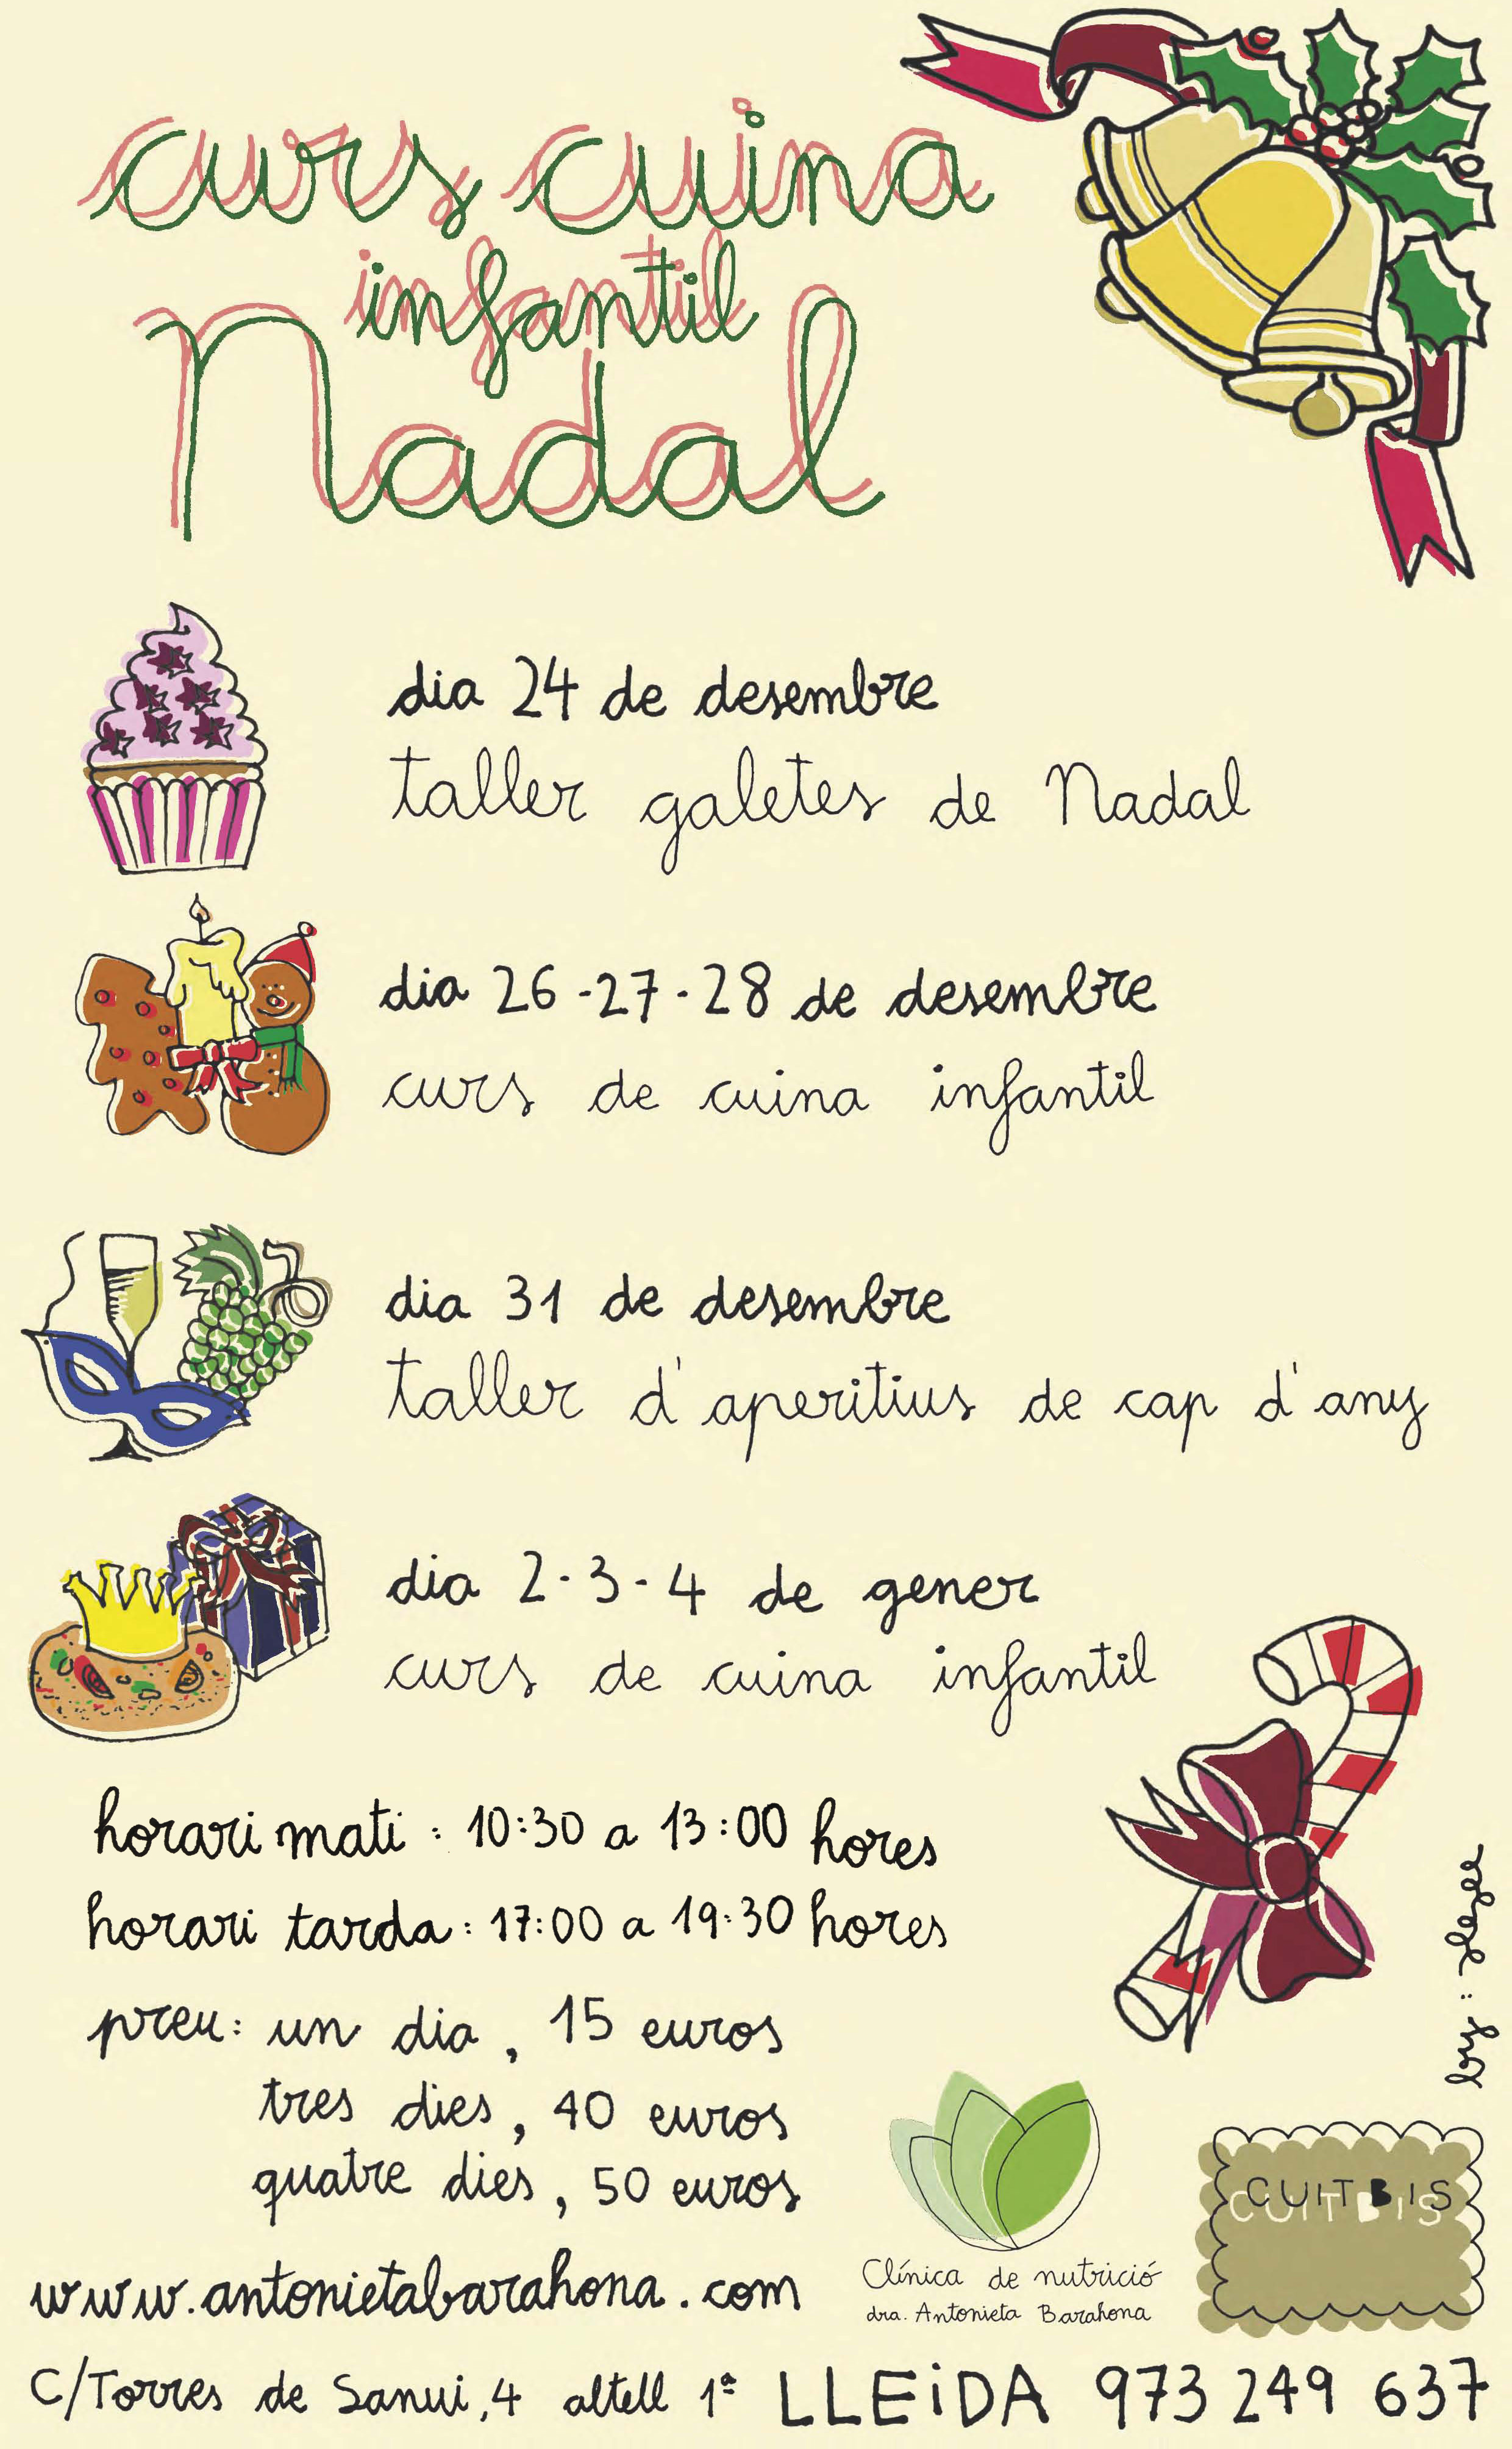 curs cuina
infantil
Nadal
dia 24 de desembre
taller galetes de Nadal
dia 26-27-28 de desembre
curs de cuina infantil
dia 31 de desembre
taller d'aperitius de cap d'any
dia 2-3-4 de gener
curs de cuina infantil
horari mati : 10:30 a 13:00 hores
horari tarda : 17:00 a 19:30 hores
preu: un dia, 15 euros
tres dies, 40 euros
quatre dies, 50 euros
by :
CUITBIS
www.antonietabarahona.com
Clínica de nutrició
dra. Antonieta Barahona
C/Torres de Sanui, 4 altell 1ª LLEiDA 973 249 637